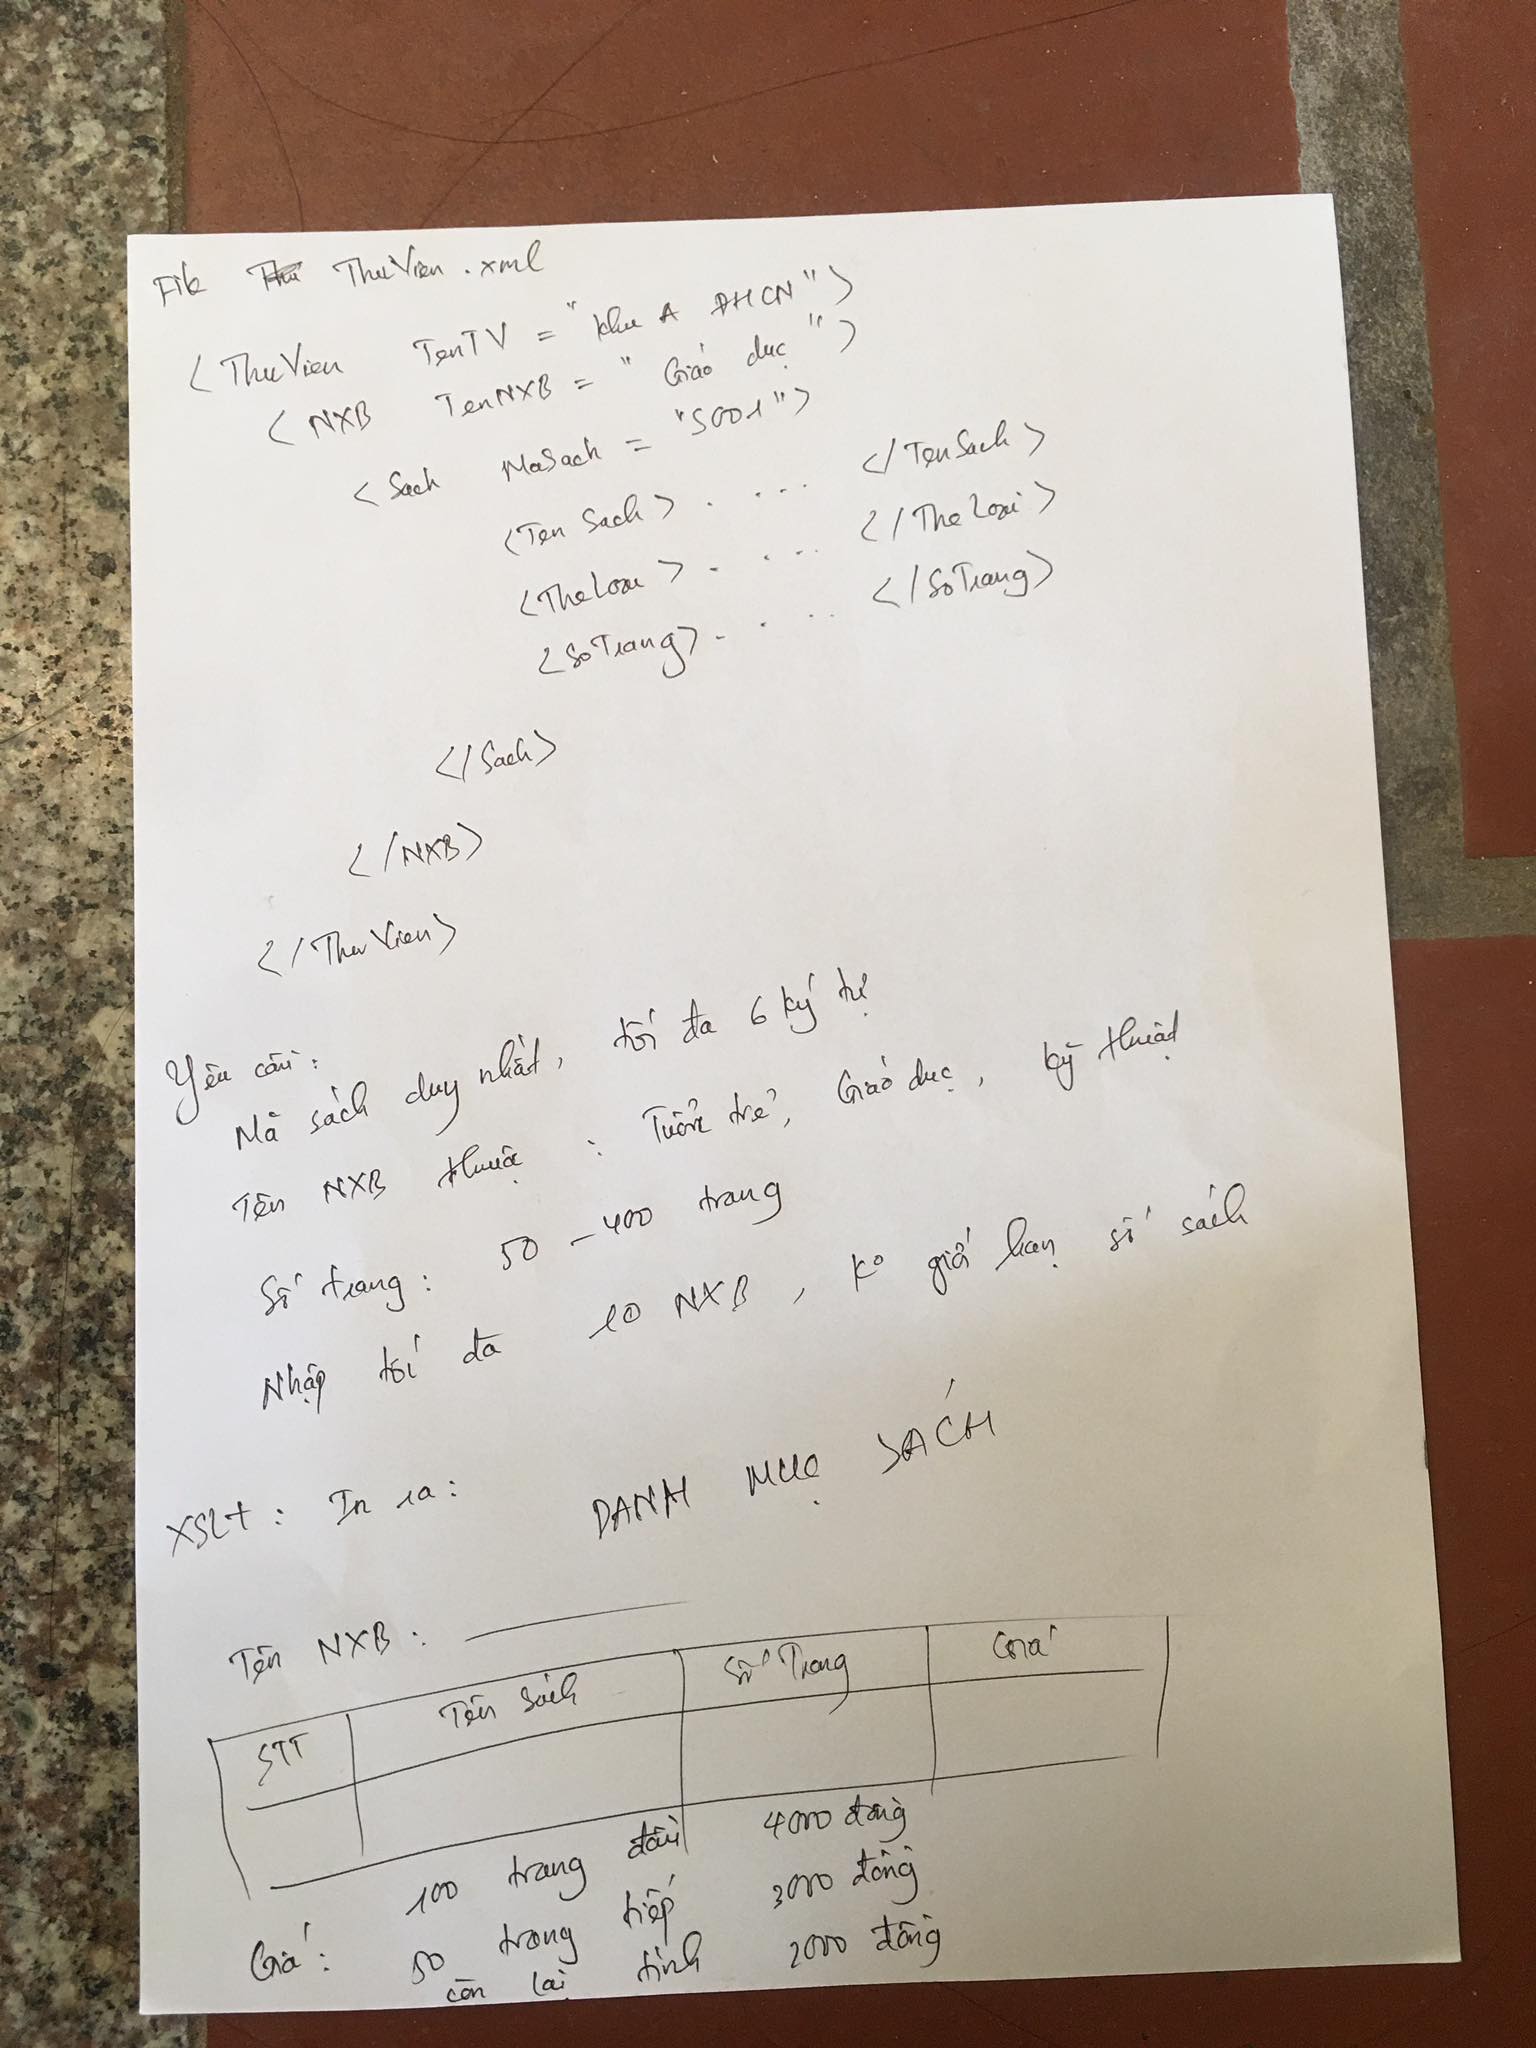 File ThuVien.xml
<ThuVien TenTV = "Khu A ĐHCN">
<NXB TenNXB = "Giáo dục">
<Sach MaSach = "S001">
<TenSach> . . . . </TenSach>
<TheLoai> . . . . </TheLoai>
<SoTrang> . . . . </SoTrang>
</Sach>
</NXB>
</ThuVien>
Yêu cầu:
Mã sách duy nhất, tối đa 6 ký tự
Tên NXB thuộc : Tuổi trẻ, Giáo dục, Kỹ thuật
Số trang : 50 - 400 trang
Nhập tối đa 10 NXB, ko giới hạn số sách
XSLT : In ra :
DANH MỤC SÁCH
Tên NXB :
STT Tên Sách Số Trang Giá
Giá : 100 trang đầu 4000 đồng
50 trang tiếp 3000 đồng
còn lại tính 2000 đồng